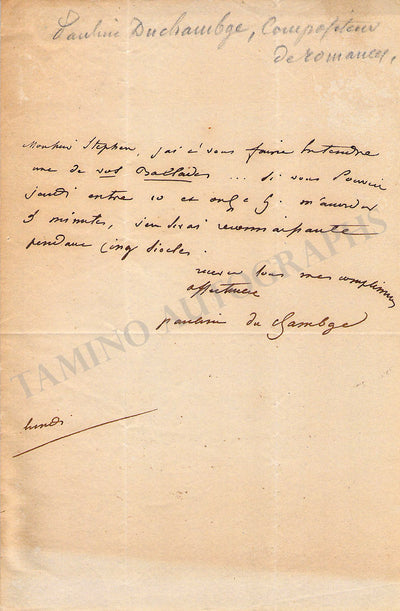 Pauline Duchambge, Compositeur
de romances,
Monsieur Stephen, j'ai à vous faire entendre
une de vos Ballades ... Si vous Pouviez
jeudi entre 10 et onze h. m'accorder
5 minutes, j'en serai reconnaissante
pendant cinq siecles.
recevez tous mes complimens
affectueux
pauline du chambge
lundi
TAMINO AUTOGRAPHS